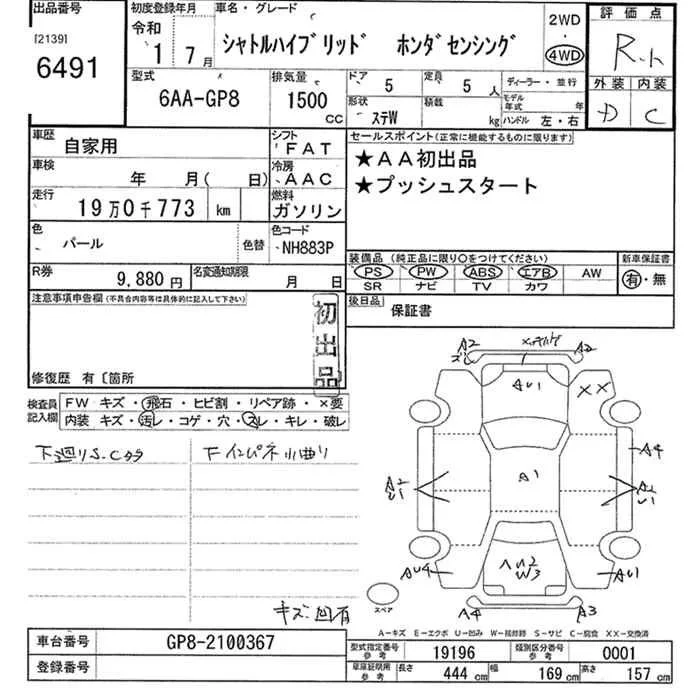 出品番号
[2139]
6491
初度登録年月
令和
1 7月
車名・グレード
シャトルハイブリッド ホンダセンシング
2WD
・
4WD
評価点
R
外装 内装
D C
型式
6AA-GP8
排気量
1500
CC
ドア
5
定員
5人
形状
ステW
積載
kg
ディーラー・並行
モデル年式 年
ハンドル 左・右
車歴
自家用
シフト
FAT
車検
年 月( 日)
冷房
AAC
走行
19万0千773 km
燃料
ガソリン
色
パール
色替
色コード
NH883P
R券
9,880円
名変通知期限
月 日
セールスポイント(正常に機能するものに限ります)
★AA初出品
★プッシュスタート
装備品(純正品に限り○をつけてください)
PS PW ABS エアB AW
SR ナビ TV カワ
新車保証書
有・無
後日品
保証書
注意事項申告欄(不具合内容等は具体的に記入して下さい)
初出品
修復歴 有〔箇所
検査員記入欄
FW キズ・飛石・ヒビ割・リペア跡・×要
内装 キズ・汚レ・コゲ・穴・スレ・キレ・破レ
下廻りS.Cタタ
Fインパネ小曲り
キズ凹有
A2
A2
AU1
XX
A4
A1
A2
U1
A2
U1
AU4
W3
AU1
A4
A3
スペア
A-キズ E-エクボ U-凹み W-補修跡 S-サビ C-腐食 XX-交換済
車台番号
GP8-2100367
登録番号
型式指定番号
参考
19196
類別区分番号
参考
0001
車庫証明用
参考
長さ
444 cm
幅
169 cm
高さ
157 cm